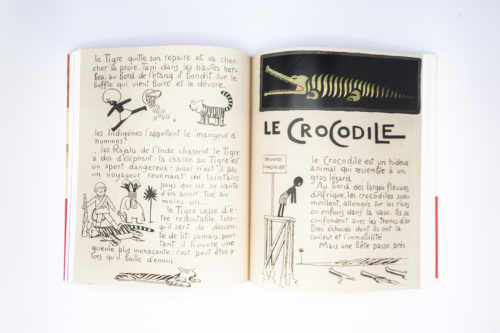 le Tigre quitte son repaire et va cher-
cher sa proie. Tapi dans les hautes her-
bes, au bord de l'étang, il bondit sur le
buffle qui vient boire et le dévore.
les Indigènes l'appellent le "mangeur d'
hommes".
les Rajahs de l'Inde chassent le Tigre
à dos d'éléphant: la chasse au Tigre est
un sport dangereux: aussi n'est-il pas
un voyageur revenant de lointains
pays qui ne se vante
d'en avoir tué au
moins un.
le Tigre cesse d'ê-
tre redoutable lors-
qu'il sert de descen-
te de lit; jamais, pour-
tant il n'ouvre une
gueule plus menaçante: c'est peut-être a-
lors qu'il bâille d'ennui.
LE CROCODILE
BAIGNADE
le Crocodile est un hideux
animal qui ressemble à un
gros lézard.
Au bord des larges fleuves
d'Afrique, les crocodiles som-
meillent, allongés sur les rives
ou enfouis dans la vase. Ils se
confondent avec les troncs d'ar-
bres échoués dont ils ont la
couleur et l'immobilité.
Mais une bête passe près